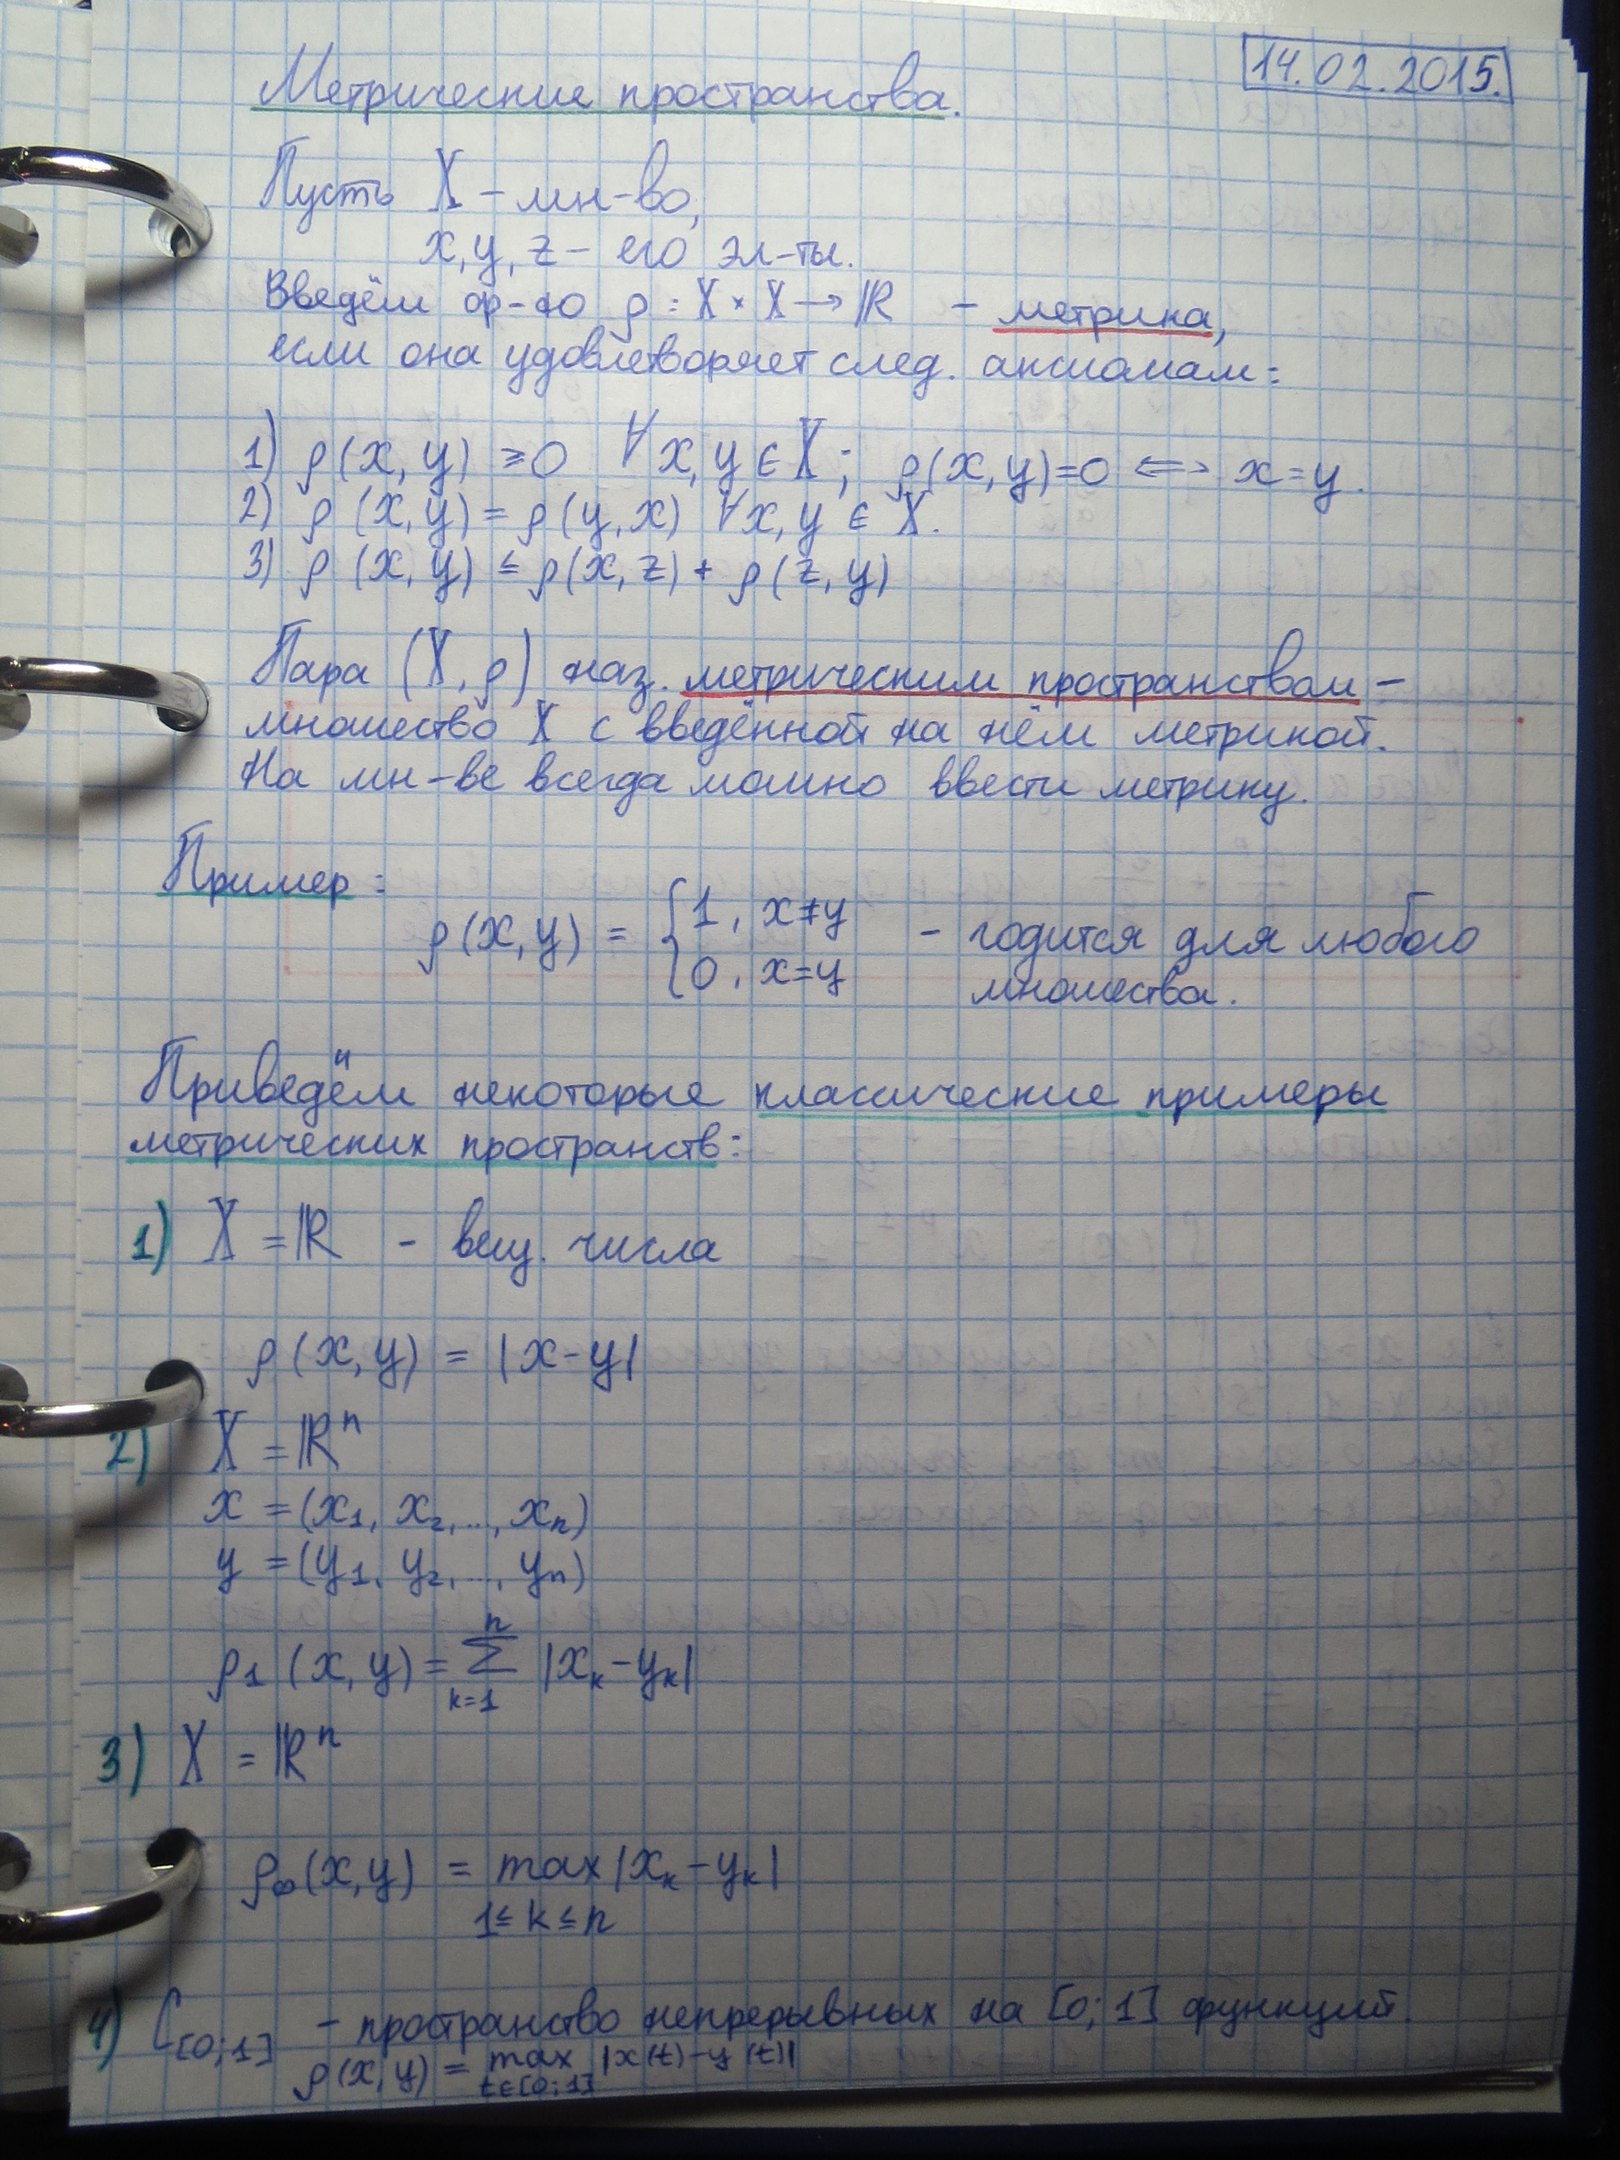 14.02.2015.
Метрические пространства.
Пусть X – мн-во,
x, y, z – его эл-ты.
Введём ф-ю ρ : X × X → ℝ – метрика,
если она удовлетворяет след. аксиомам:
1) ρ(x, y) ≥ 0 ∀x, y ∈ X; ρ(x, y)=0 ⟺ x=y.
2) ρ(x, y) = ρ(y, x) ∀x, y ∈ X.
3) ρ(x, y) ≤ ρ(x, z) + ρ(z, y)
Пара (X, ρ) наз. метрическим пространством –
множество X с введённой на нём метрикой.
На мн-ве всегда можно ввести метрику.
Пример:
ρ(x, y) = { 1, x≠y
0, x=y
– годится для любого
множества.
Приведём некоторые классические примеры
метрических пространств:
1) X = ℝ – вещ. числа
ρ(x, y) = |x-y|
2) X = ℝⁿ
x = (x₁, x₂, ..., xₙ)
y = (y₁, y₂, ..., yₙ)
ρ₁(x, y) = ∑ₖ₌₁ⁿ |xₖ - yₖ|
3) X = ℝⁿ
ρ∞(x, y) = max |xₖ - yₖ|
1 ≤ k ≤ n
4) C[0;1] – пространство непрерывных на [0;1] функций.
ρ(x, y) = max |x(t) - y(t)|
t∈[0;1]